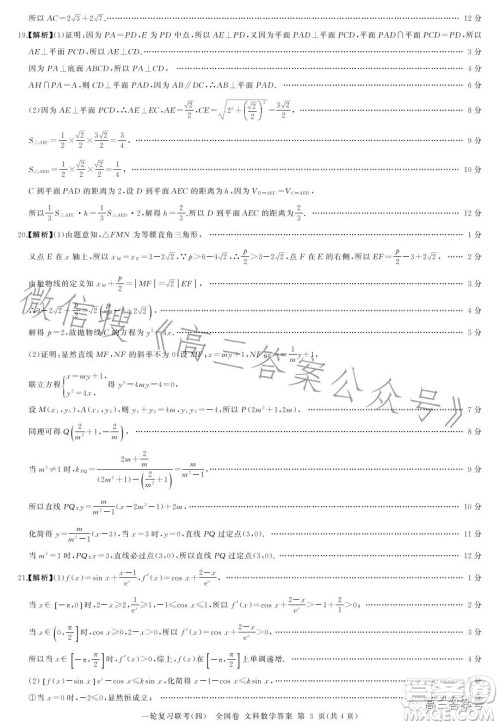 所以 AC=2√3+2√7. 12 分
19.【解析】(1)证明:因为 PA=PD,E 为 PD 中点,所以 AE⊥PD,又因为平面 PAD⊥平面 PCD,平面 PAD∩平面 PCD=PD,所以
AE⊥平面 PCD,所以 AE⊥CD. 3 分
因为 PA⊥底面 ABCD,所以 PA⊥CD, 4 分
AH∩PA=A,则 CD⊥平面 PAD,因为 AB∥DC,所以 AB⊥平面 PAD. 6 分
(2)因为 AE⊥平面 PCD,∴AE⊥EC,AE=√2/2,CE=√(2²+(√2/2)²)=3√2/2. 8 分
S△AEC=1/2×√2/2×3√2/2=3/4, 9 分
S△AED=1/2×√2/2×√2/2=1/4, 10 分
C 到平面 PAD 的距离为 2,设 D 到平面 AEC 的距离为 h,因为 V_D-AEC=V_C-AED,
所以 1/3 S△AEC·h=1/3 S△AED·2,解得 h=2/3.所以 D 到平面 AEC 的距离为 2/3. 12 分
20.【解析】(1)由题意知,△FMN 为等腰直角三角形, 1 分
又点 E 在 x 轴上,所以 x_M=x_E=3-2√2,∵p>6-4√2,∴p/2>3-2√2,点 F 在 E 的右侧,所以 EF=p/2-3+2√2, 2 分
由抛物线的定义知 x_M+p/2=|MF|=√2|EF|, 3 分
4 分
解得 p=2,故抛物线 C 的方程为 y²=4x. 5 分
(2)证明:显然直线 MF,NF 的斜率不为 0,设 MF:x=my+1,
联立方程{x=my+1, y²=4x,得 y²-4my-4=0,
设 M(x₁,y₁),A(x₂,y₂),则 y₁+y₂=4m,所以 P(2m²+1,2m), 7 分
同理可得 Q(2/m²+1,-2/m), 8 分
当 m²≠1 时,k_PQ=(2m+2/m)/((2m²+1)-(2/m²+1))=m/(m²-1), 9 分
所以直线 PQ:y=m/(m²-1)(x-2m²-1)+2m 10 分
化简得 y=m/(m²-1)(x-3),当 x=3 时,y=0,直线 PQ 过定点(3,0), 11 分
当 m²=1 时,PQ:x=3,直线必过点(3,0),所以直线 PQ 过定点(3,0). 12 分
21.【解析】(1)f(x)=sin x+(x-1)/eˣ,f′(x)=cos x+(2-x)/eˣ, 1 分
当 x∈[-π,0]时,2-x≥2,1/eˣ≥1,所以 f′(x)=cos x+(2-x)/eˣ>-1+2>0; 2 分
当 x∈(0,π/2]时,cos x≥0,所以 f′(x)=cos x+(2-x)/eˣ>0, 3 分
所以当 x∈[-π,π/2]时,f′(x)=cos x+(2-x)/eˣ>0,所以 f(x)在[-π,π/2]上单调递增. 4 分
①当 x∈[-π,0]时,-2≤0,显然恒成立, 5 分
一轮复习联考(四) 全国卷 文科数学答案 第 3 页(共 4 页)
微信搜《高三答案公众号》